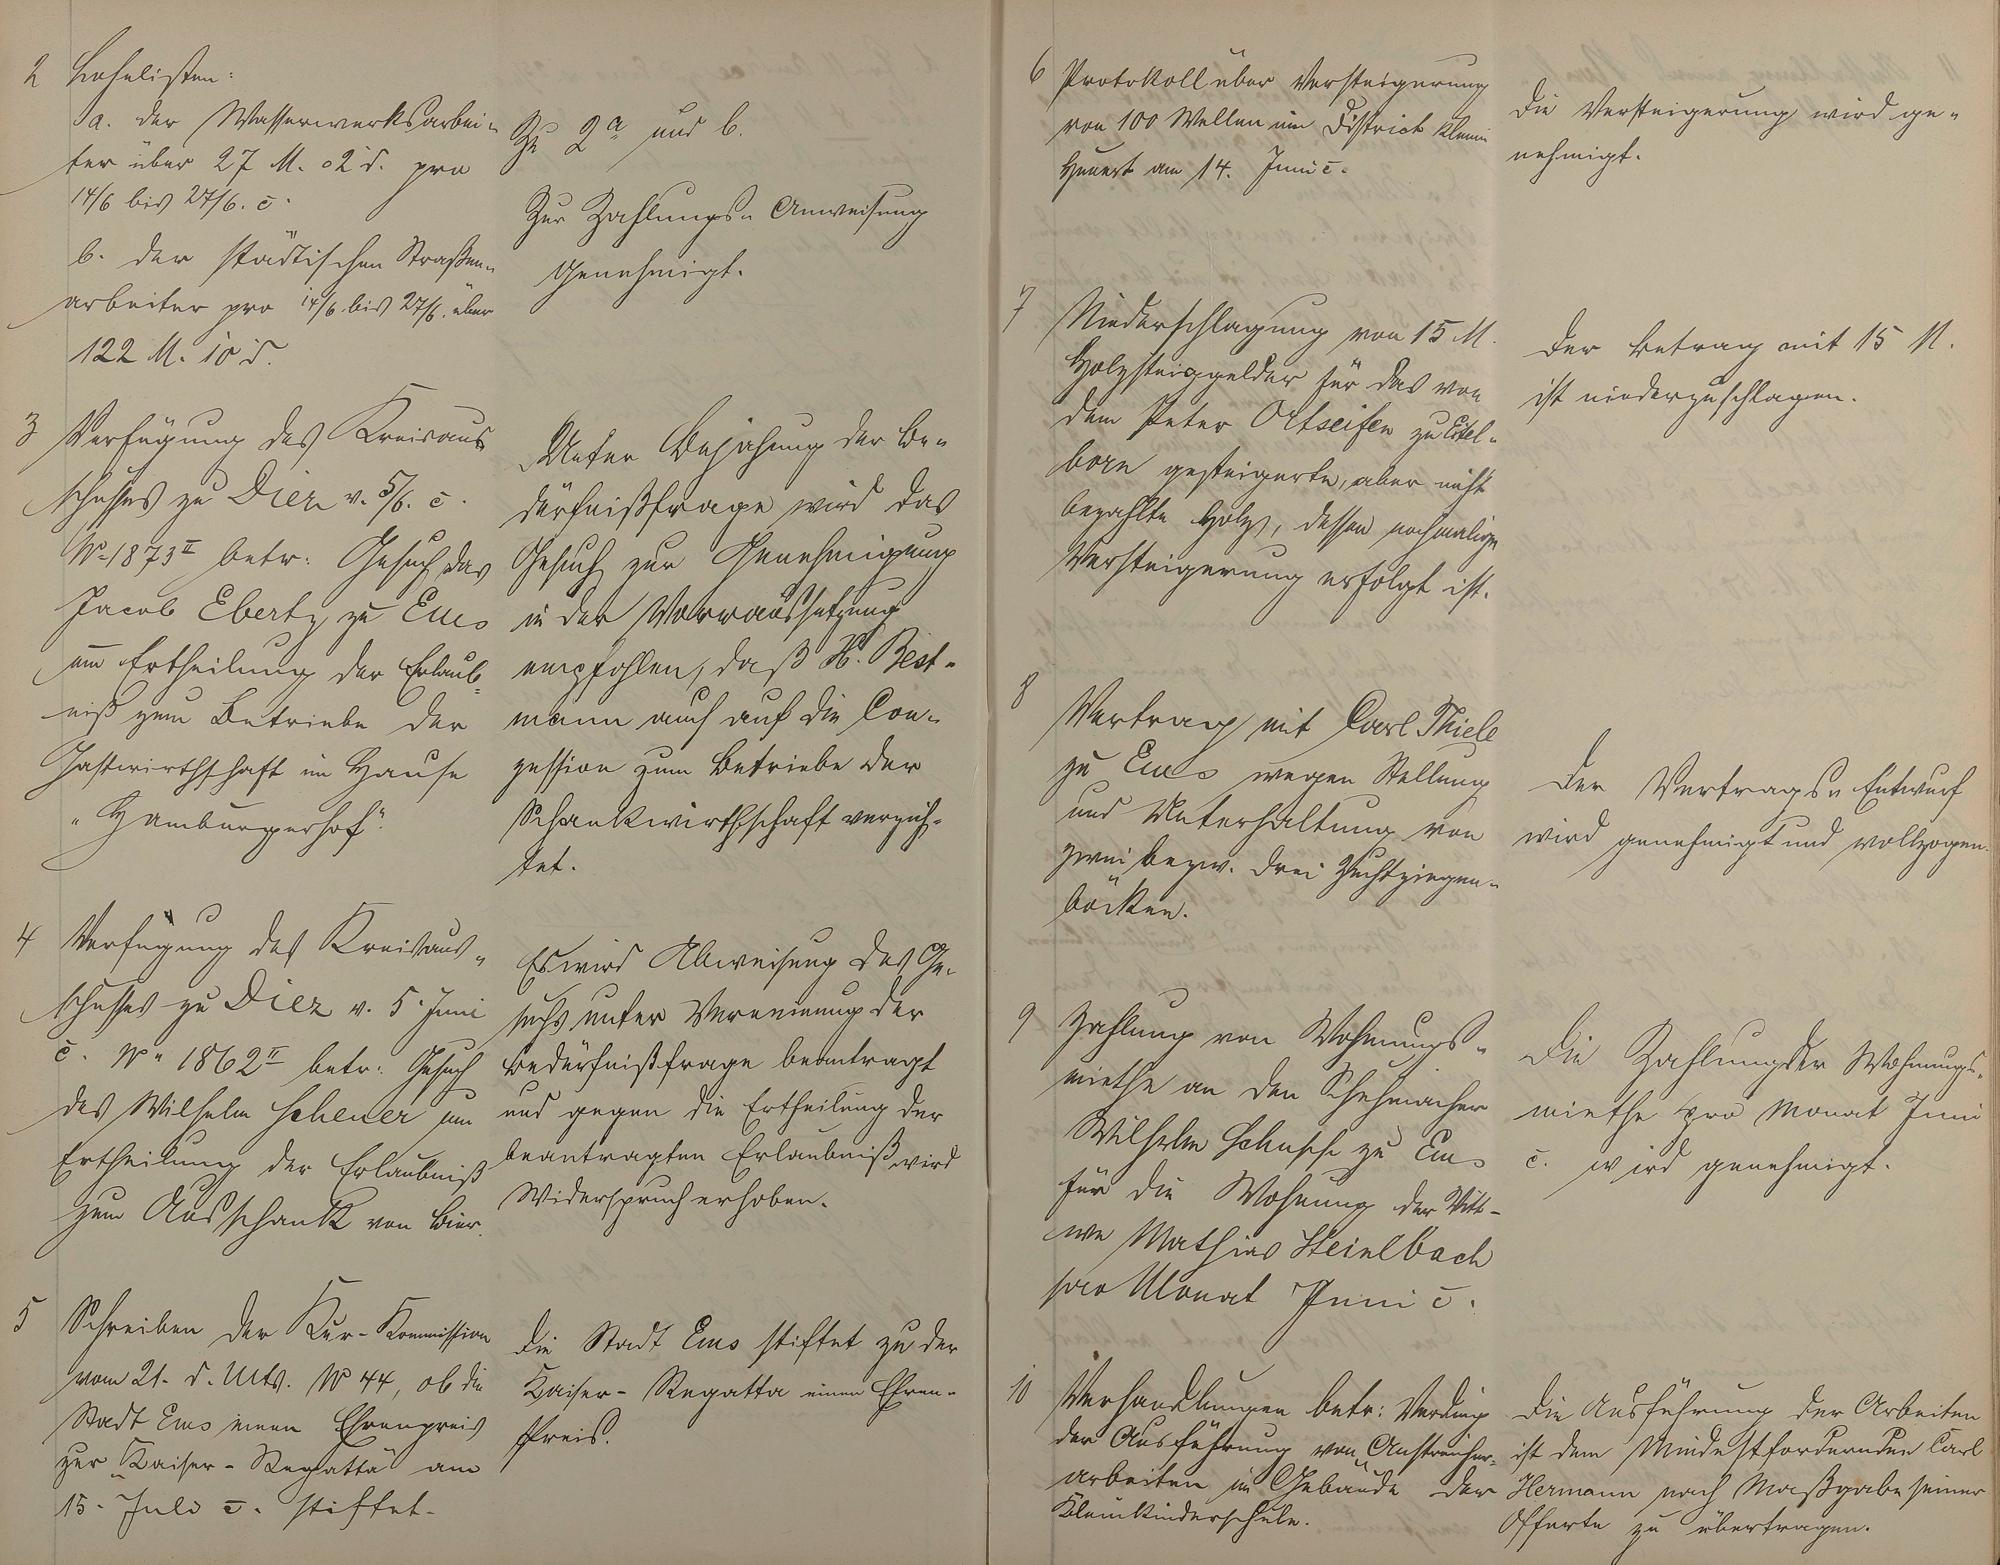 2 Lohnlisten:
a. der Wasserwerksarbei-
ter über 27 M. 02 d. pro
14/6 bis 27/6. c.
b. der städtischen Straßen-
arbeiter pro 14/6 bis 27/6. über
122 M. 10 d.
Zu 2a und b.
Zur Zahlungs- Anweisung
genehmigt.
3 Verfügung des Kreisaus
schusses zu Diez v. 5/6. c.
No 1873 II betr: Gesuch des
Jacob Ebertz zu Ems
um Ertheilung der Erlaub-
niß zum Betriebe der
Gastwirthschaft im Hause
"Hamburgerhof".
Unter Bejahung der Be-
dürfnißfrage wird das
Gesuch zur Genehmigung
in der Vorraussetzung
empfohlen, daß H. Best-
mann auch auf die Con-
zession zum Betriebe der
Schankwirthschaft verzich-
tet.
4 Verfügung des Kreisaus-
schusses zu Diez v. 5. Juni
c. No 1862 II betr: Gesuch
des Wilhelm Scheuer um
Ertheilung der Erlaubniß
zum Ausschank von Bier.
Es wird Abweisung des Ge-
suchs unter Verneinung der
Bedürfnißfrage beantragt
und gegen die Ertheilung der
beantragten Erlaubniß wird
Widerspruch erhoben.
5 Schreiben der Kur-Kommission
vom 21. d. Mts. No 44, ob die
Stadt Ems einen Ehrenpreis
zur "Kaiser-Regatta" am
15. Juli c. stiftet.
Die Stadt Ems stiftet zu der
Kaiser-Regatta einen Ehren-
Preis.
6 Protokoll über Versteigerung
von 100 Wellen im District Klein
am 14. Juni c.
Die Versteigerung wird ge-
nehmigt.
7 Niederschlagung von 15 M.
Holzsteiggelder für das von
dem Peter Ortseifen zu Eitel-
born gesteigerte, aber nicht
bezahlte Holz, dessen nochmalige
Versteigerung erfolgt ist.
Der Betrag mit 15 M.
ist niederzuschlagen.
8 Vertrag mit Carl Thiele
zu Ems wegen Stellung
und Unterhaltung von
zwei bezw. drei Zuchtziegen-
böcken.
Der Vertrags- Entwurf
wird genehmigt und vollzogen.
9 Zahlung von Wohnungs-
miethe an den Schuhmacher
Wilhelm zu Ems
für die Wohnung der Witt-
we Mathias Steinelbach
pro Monat Juni c.
Die Zahlung der Wohnungs-
miethe pro Monat Juni
c. wird genehmigt.
10 Verhandlungen betr: Verding
der Ausführung von Anstreicher-
arbeiten im Gebäude der
Kleinkinderschule.
Die Ausführung der Arbeiten
ist dem Mindestfordernden Carl
Hermann nach Maßgabe seiner
Offerte zu übertragen.